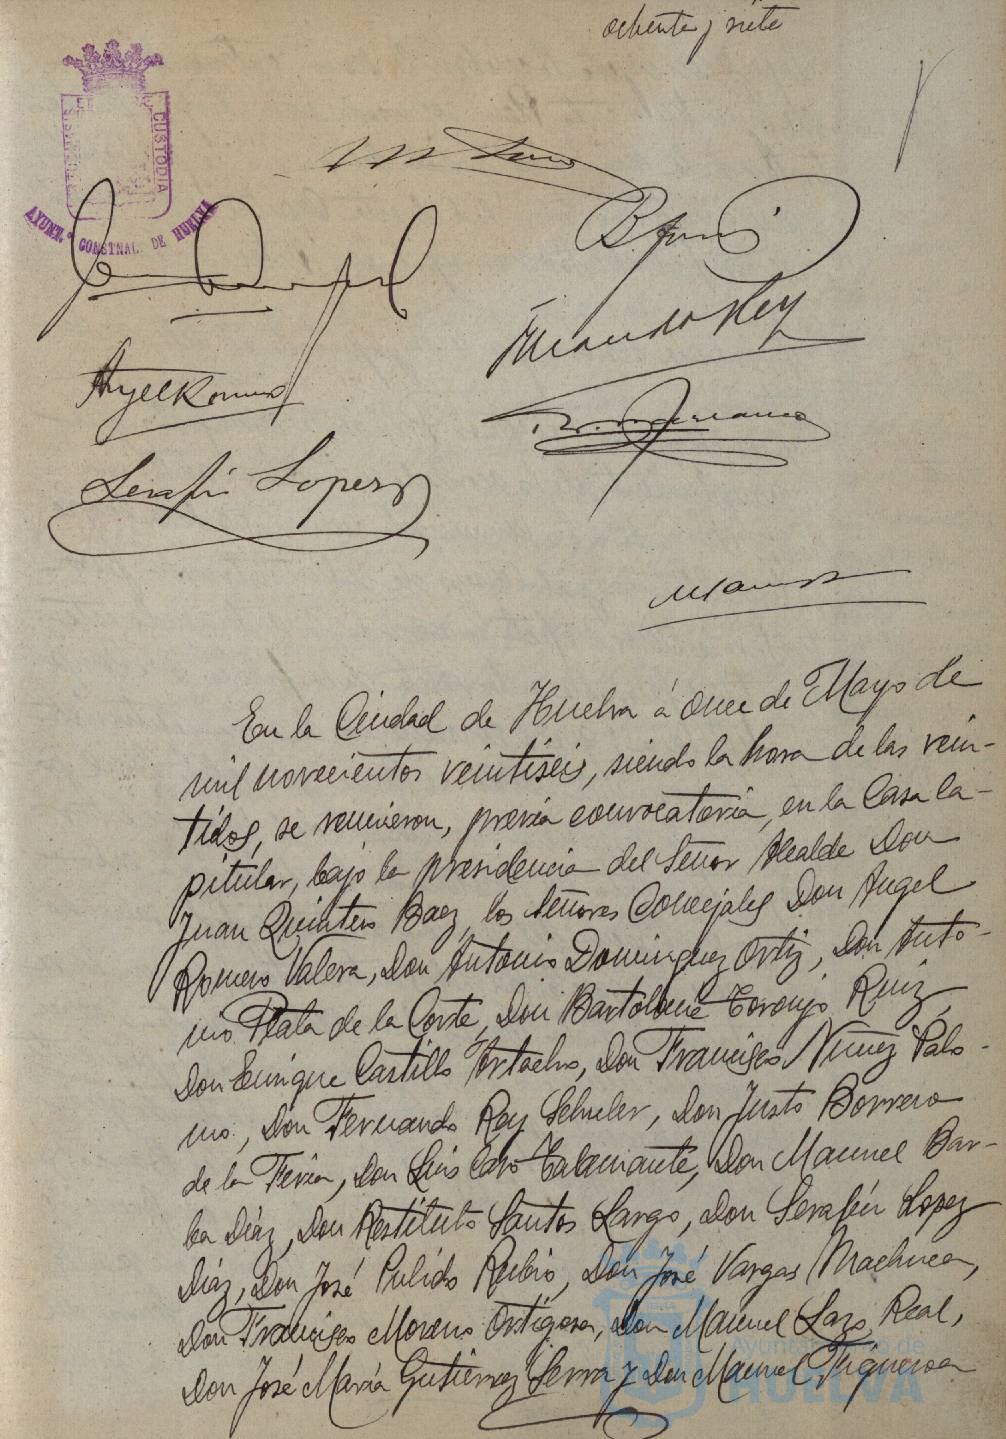 ochenta y siete
CUSTODIA
AYUNT.º CONSTNAL. DE HUELVA
Fernando Rey
Angel Romero
Serafín Lopez
En la Ciudad de Huelva á once de Mayo de
mil novecientos veintiseis, siendo la hora de las vein-
tidos, se reunieron, previa convocatoria, en la Casa Ca-
pitular, bajo la presidencia del Señor Alcalde Don
Juan Quintero Baez, los Señores Concejales Don Angel
Romero Valera, Don Antonio Dominguez Ortiz, Don Anto-
nio Plata de la Corte, Don Bartolomé Toronjo Ruiz,
Don Enrique Castillo Artacho, Don Francisco Nuñez Palo-
mo, Don Fernando Rey Schuler, Don Justo Borrero
de la Feria, Don Luis Caro Talamante, Don Manuel Bar-
ba Díaz, Don Restituto Santos Largo, Don Serafín Lopez
Díaz, Don José Pulido Rubio, Don José Vargas Machuca,
Don Francisco Moreno Ortigosa, Don Manuel Lazo Real,
Don José María Gutierrez Serra y Don Manuel Figueroa
Ayuntamiento de
HUELVA